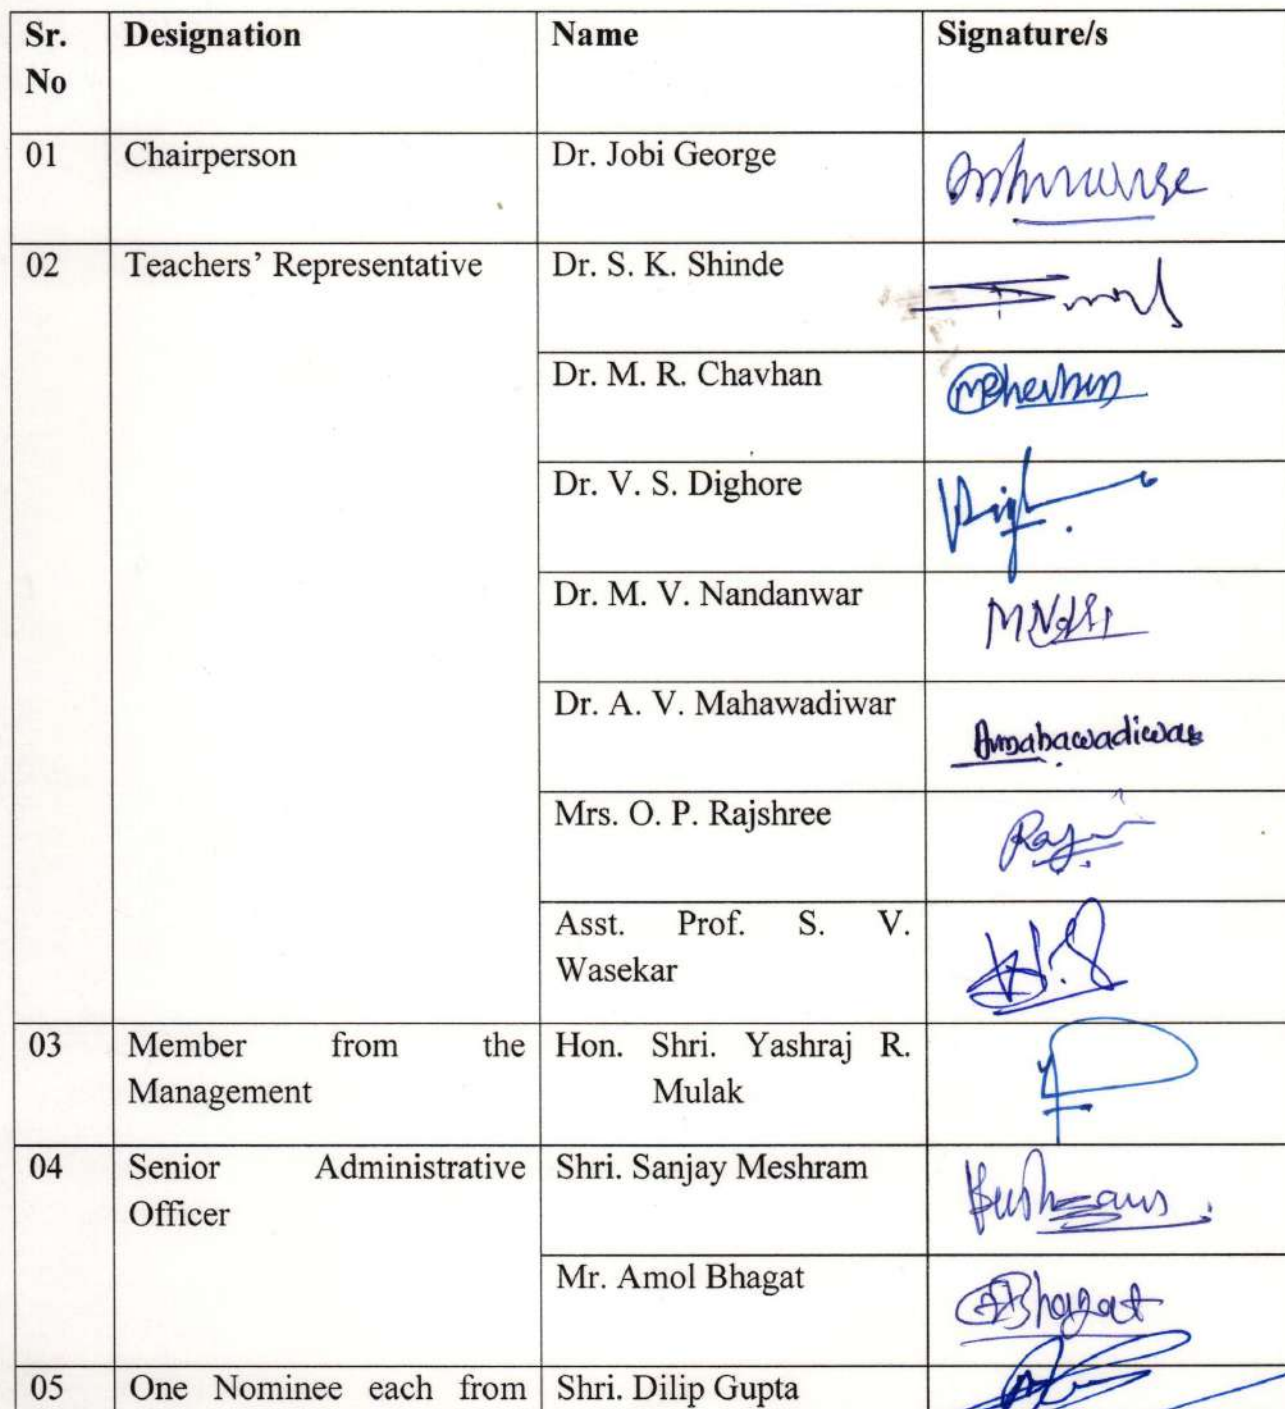 Sr. No Designation Name Signature/s
01 Chairperson Dr. Jobi George
02 Teachers' Representative Dr. S. K. Shinde
Dr. M. R. Chavhan
Dr. V. S. Dighore
Dr. M. V. Nandanwar
Dr. A. V. Mahawadiwar Amahawadiwar
Mrs. O. P. Rajshree
Asst. Prof. S. V.
Wasekar
03 Member from the Hon. Shri. Yashraj R.
Management Mulak
04 Senior Administrative Shri. Sanjay Meshram
Officer
Mr. Amol Bhagat ABhagat
05 One Nominee each from Shri. Dilip Gupta